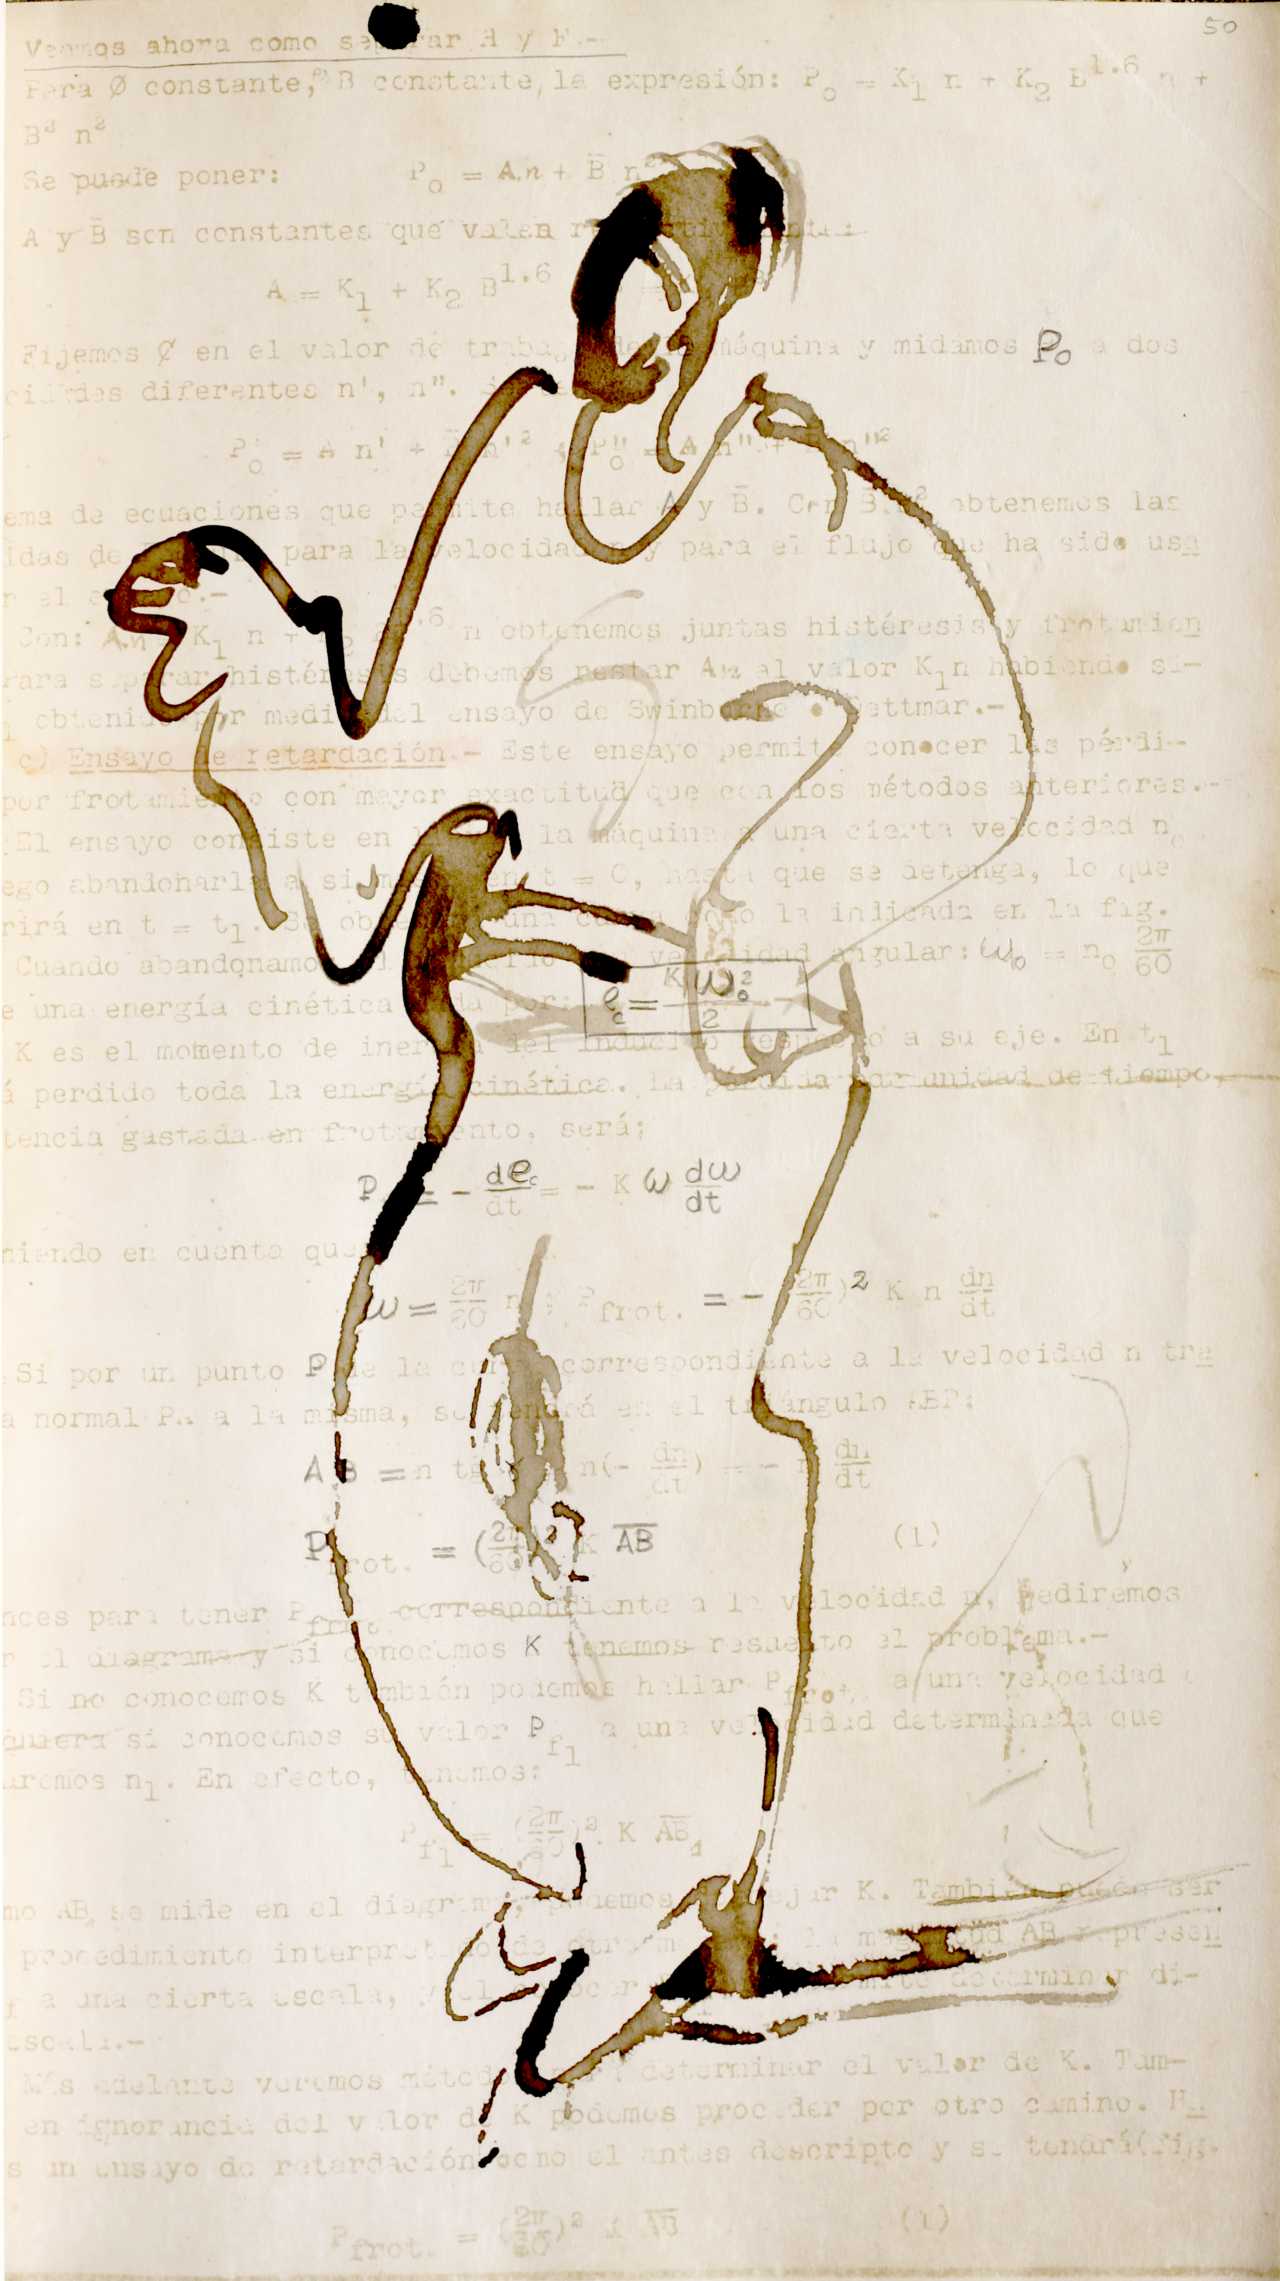 50
Veamos ahora como separar H y F.-
Para Ø constante, B constante, la expresión: P₀ = K₁ n + K₂ B^1.6 n +
B² n²
Se puede poner: P₀ = A n + B̄ n²
A y B̄ son constantes que valen
A = K₁ + K₂ B^1.6
Fijemos Ø en el valor de trabajo de la máquina y midamos P₀ a dos
cidades diferentes n', n".
P₀' = A n' + n'² P₀" = A n" + n"²
ema de ecuaciones que permite hallar A y B̄. Con B̄ n² obtenemos las
idas de para la velocidad n y para el flujo que ha sido usa
el
Con: A n = K₁ n + K₂ 1.6 n obtenemos juntas histéresis y frotamien
Para separar histéresis debemos restar A n al valor K₁n habiendo si-
obtenido por medio del ensayo de Swinburne o Dettmar.-
c) Ensayo de retardación.- Este ensayo permite conocer las pérdi-
por frotamiento con mayor exactitud que con los métodos anteriores.-
El ensayo consiste en la máquina a una cierta velocidad n₀
ego abandonarla a si en t = 0, hasta que se detenga, lo que
rirá en t = t₁. Se una como la indicada en la fig.
Cuando abandonamos velocidad angular: ω₀ = n₀ 2π/60
e una energía cinética dada por: e_c = K ω₀²/2
K es el momento de inercia del inducido respecto a su eje. En t₁
á perdido toda la energía cinética. La pérdida por unidad de tiempo,
tencia gastada en frotamiento, será;
P = - de_c/dt = - K ω dω/dt
niendo en cuenta que
ω = 2π/60 n ; P frot. = - (2π/60)² K n dn/dt
Si por un punto P de la curva correspondiente a la velocidad n tra
a normal PA a la misma, se tendrá en el triángulo ABP:
AB = n tg n(- dn/dt) = - n dn/dt
P frot. = (2π/60)² K AB (1)
nces para tener P frot. correspondiente a la velocidad n, mediremos
el diagrama y si conocemos K tenemos resuelto el problema.-
Si no conocemos K también podemos hallar P frot. a una velocidad
quiera si conocemos su valor P f₁ a una velocidad determinada que
aremos n₁. En efecto, tenemos:
P f₁ = (2π/60)² K AB₁
mo AB₁ se mide en el diagrama, podemos despejar K. También puede ser
procedimiento interpretado de otra : la magnitud AB represen
a una cierta escala, y el determinar di-
escala.-
Más adelante veremos métodos para determinar el valor de K. Tam-
en ignorancia del valor de K podemos proceder por otro camino.
s un ensayo de retardación como el antes descripto y se tendrá(fig.
P frot. = (2π/60)² K AB (1)